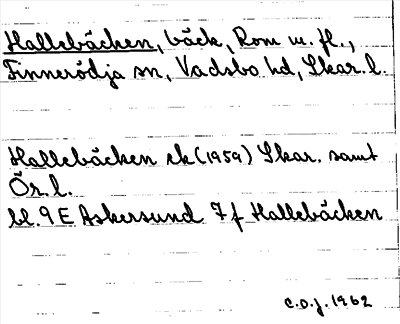 Hallebäcken, bäck, Rom m. fl.,
Finnerödja sn, Vadsbo hd, Skar. l.
Hallebäcken ek (1959) Skar. samt
Ör. l.
bl. 9 E Askersund 7 f Hallebäcken
C.O.J. 1962